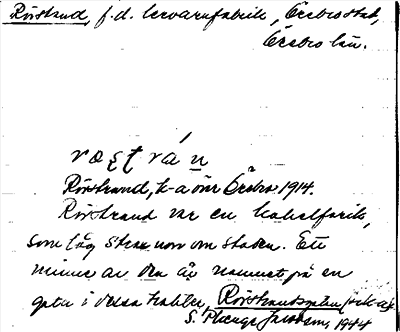 Rörstrand, f.d. lervarufabrik, Örebro stad,
Örebro län.
rœʂtrán
Rörstrand, k-a över Örebro 1914.
Rörstrand var en kakelfabrik,
som låg strax norr om staden. Ett
minne av den är namnet på en
gata i dessa trakter, Rörstrandsgatan
S. Plænge Jacobson, 1944